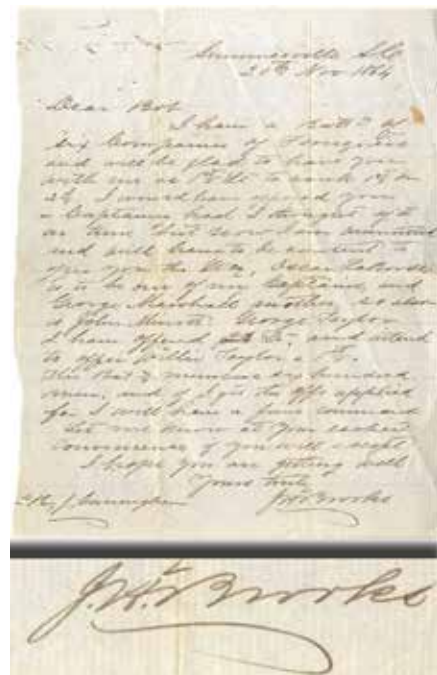 Summerville S.C.
20th Nov 1864
Dear Bob
I have a Batt. of
Six Companies of Foreigners
and will be glad to have you
with me as Lt. to rank 1st or
2d. I would have offered you
a Captaincy had I thought of it
in time but now I am
and will have to be content to
offer you the Lt. Oscar LaBorde
is to be one of my Captains, and
George Marshall another, so also
is John Minott. George Taylor
I have offered a Lt. and intend
to offer Willie Taylor a Lt.
This Batt. numbers six hundred
men, and if I get the offs applied
for I will have a fine command
Let me know at your earliest
convenience if you will accept
I hope you are getting well
Yours truly
J.H. Brooks
J. Cunningham
J.H. Brooks